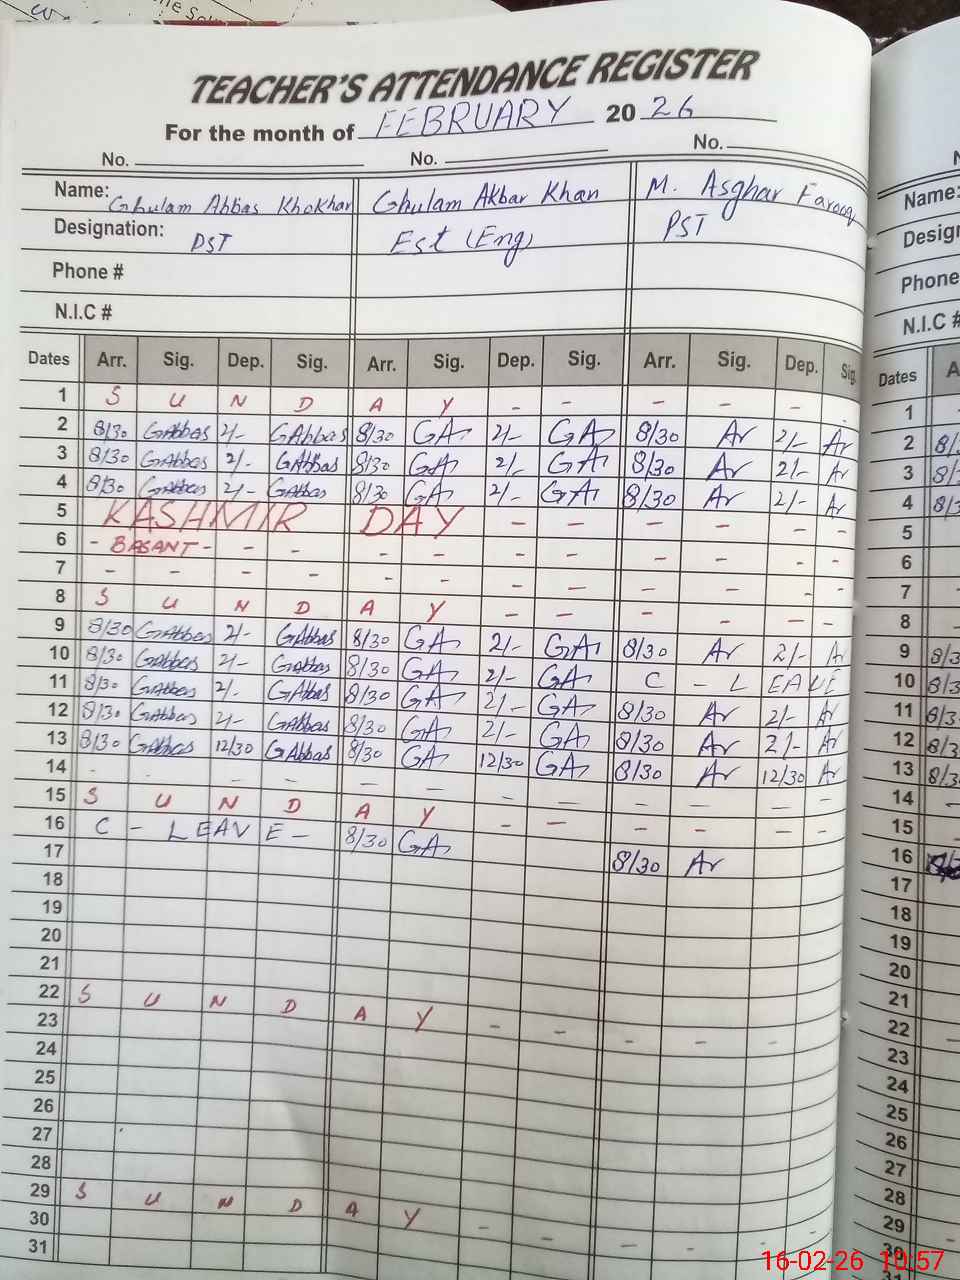 TEACHER'S ATTENDANCE REGISTER
For the month of FEBRUARY 20 26
No. No. No.
Name: Ghulam Abbas Khokhar Ghulam Akbar Khan M. Asghar Farooq
Designation: PST Est (Eng) PST
Phone #
N.I.C #
Dates Arr. Sig. Dep. Sig. Arr. Sig. Dep. Sig. Arr. Sig. Dep. Sig.
1 S U N D A Y - - - - -
2 8/30 GAbbas 2/- GAbbas 8/30 GA 2/- GA 8/30 Ar 2/- Ar
3 8/30 GAbbas 2/- GAbbas 8/30 GA 2/- GA 8/30 Ar 2/- Ar
4 8/30 GAbbas 2/- GAbbas 8/30 GA 2/- GA 8/30 Ar 2/- Ar
5 KASHMIR DAY - - - - - -
6 - BASANT - - - - - - - - - -
7 - - - - - - - - - - - -
8 S U N D A Y - - - - - -
9 8/30 GAbbas 2/- GAbbas 8/30 GA 2/- GA 8/30 Ar 2/- Ar
10 8/30 GAbbas 2/- GAbbas 8/30 GA 2/- GA C - LEAVE
11 8/30 GAbbas 2/- GAbbas 8/30 GA 2/- GA 8/30 Ar 2/- Ar
12 8/30 GAbbas 2/- GAbbas 8/30 GA 2/- GA 8/30 Ar 2/- Ar
13 8/30 GAbbas 12/30 GAbbas 8/30 GA 12/30 GA 8/30 Ar 12/30 Ar
14 - - - - - - - - - - - -
15 S U N D A Y - - - - - -
16 C - LEAVE - 8/30 GA 8/30 Ar
17
18
19
20
21
22 S U N D A Y - - - - - -
23
24
25
26
27
28
29 S U N D A Y - - - - -
30
31
Name:
Phone #
N.I.C #
Dates A
1
2 8/3
3 8/3
4 8/3
5
6
7
8
9 8/3
10 8/3
11 8/3
12 8/3
13 8/3
14
15
16
17
18
19
20
21
22
23
24
25
26
27
28
29
30
16-02-26 10:57